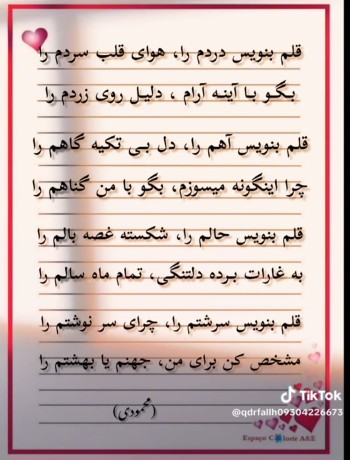 قلم بنویس دردم را، هوای قلب سردم را
بگو با آینه آرام ، دلیل روی زردم را
قلم بنویس آهم را، دل بی تکیه گاهم را
چرا اینگونه میسوزم، بگو با من گناهم را
قلم بنویس حالم را، شکسته غصه بالم را
به غارات برده دلتنگی، تمام ماه سالم را
قلم بنویس سرشتم را، چرای سر نوشتم را
مشخص کن برای من، جهنم یا بهشتم را
(محمودی)
TikTok
@qdrfallh09304226673
Espaço Colorir A&E